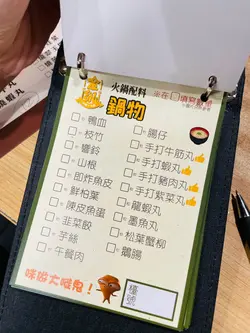 火鍋配料
※在□填寫數量
鍋物
鴨血
枝竹
響鈴
山根
即炸魚皮
鮮柏葉
陳皮魚蛋
韭菜餃
芋絲
午餐肉
腸仔
手打牛筋丸
手打蝦丸
手打豬肉丸
手打紫菜丸
龍蝦丸
墨魚丸
松葉蟹柳
鵝腸
檯號